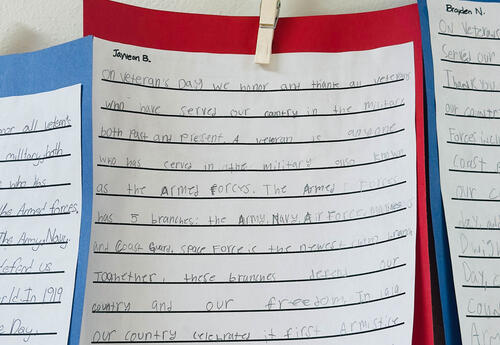 Jayveon B.
On Veteran's Day we honor and thank all veterans
who have served our country in the military
both past and present. A veteran is anyone
who has served in the military also known
as the Armed Forces. The Armed Forces
has 5 branches: the Army, Navy, Air Force, Marines
and Coast Guard. Space Force is the newest branch
Together, these branches defend our
country and our freedom. In 1919
our country celebrated it first Armistice
Brayden N.
On Veterans
Served our
Thank you
our count
Forces incl
Coast
our c
day, ad
Dwight
Day,
Count
Arm
nor all veterans
military, both
who has
the Armed forces.
the Army, Navy,
defend us
world. In 1919
e Day.